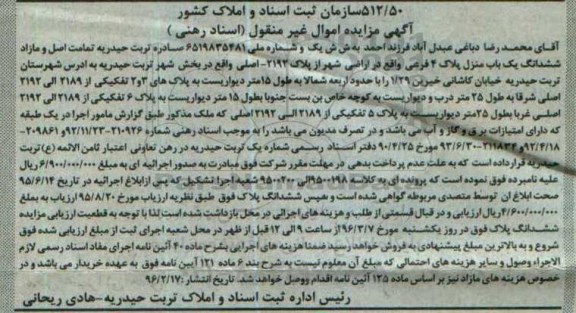 ۵۱۲/۵۰سازمان ثبت اسناد و املاک کشور
آگهی مزایده اموال غیر منقول (اسناد رهنی )
آقـای محمـد رضا دباغی عبدل آباد فرزند احمد به ش ش یک و شماره ملی ۶۵۱۹۸۳۵۴۸۱ صـادره تربت حیدریه تمامت اصل و مازاد
ششدانگ یک باب منزل پلاک ۴ فرعی واقع در اراضی شهر از پلاک ۲۱۹۲- اصلی واقع در بخش شهر تربت حیدریه به ادرس شهرستان
تربت حیدریه خیابان کاشانی خیرین ۱/۲۹ را با حدود اربعه شمالا به طول ۱۵متر دیواریست به پلاک های ۳و۲ تفکیکی از ۲۱۸۹ الی ۲۱۹۲
اصلی شرقا به طول ۲۵ متر درب و دیواریست به کوچه خاص بن بست جنوبا بطول ۱۵ متر دیواریست به پلاک ۶ تفکیکی از ۲۱۸۹ الی ۲۱۹۲
اصلـی غربا بطول ۲۵متر دیواریسـت به پلاک ۵ تفکیکی از ۲۱۸۹ الـی ۲۱۹۲ اصلی که ملک مذکور طبق گزارش مامور اجرا در یک طبقه
که دارای امتیازات برق و گاز و آب می باشد و در تصرف مدیون می باشد را به موجب اسناد رهنی شماره ۲۱۰۹۲۶-۹۲/۱۱/۲۳ و ۲۰۹۸۶۱-
۹۲/۴/۱۸ و ۲۱۱۸۳۴-۹۳/۶/۳۰ مورخ ۹۰/۴/۲۵ دفتر اسـناد رسمی شماره یک تربت حیدریه در رهن تعاونی اعتبار ثامن الائمه (ع) تربت
حیدریه قرارداده است که به علت عدم پرداخت بدهی در مهلت مقرر شرکت فوق مبادرت به صدور اجرائیه ای به مبلغ ۶/۹۰۰/۰۰۰/۰۰۰ ریال
علیه نامبرده فوق نموده است که پرونده ای به کلاسه ۹۵۰۰۱۹۸ الی ۹۵۰۰۲۰۰ شعبه اجرا تشکیل که پس ازابلاغ اجرائیه در تاریخ ۹۵/۶/۱۴
صحت ابلاغ ان توسط متصدی مربوطه گواهی شده است و سپس ششدانگ پلاک فوق طبق نظریه ارزیاب مورخ ۹۵/۸/۲۰ ارزیاب به مبلغ
۴/۶۰۰/۰۰۰/۰۰۰ریال ارزیابی و در قبال قسمتی از طلب و هزینه های اجرائی در محل بازداشت شده است لذا با توجه به قطعیت ارزیابی مزایده
ششـدانگ پلاک فوق در روز یکشنبـه مورخ ۹۶/۳/۷ از ساعت ۹ الی ۱۲ قبل از ظهر در محل شعبه اجرای ثبت از مبلغ ارزیابی شده فوق
شروع و به بالاترین مبلغ پیشنهادی به فروش خواهد رسید ضمنا هزینه های اجرایی بشرح ماده ۴۰ آئین نامه اجرای مفاد اسناد رسمی لازم
الاجراء وصول و سایر هزینه های احتمالی که مبلغ آن معلوم نیست به شرح بند ۶ ماده ۱۲۱ آئین نامه فوق به عهده خریدار می باشد و در
خصوص هزینه های مازاد نیز بر اساس ماده ۱۲۵ آئین نامه اقدام ووصول خواهد شد. تاریخ انتشار :۹۶/۲/۱۷
رئیس اداره ثبت اسناد و املاک تربت حیدریه-هادی ریحانی